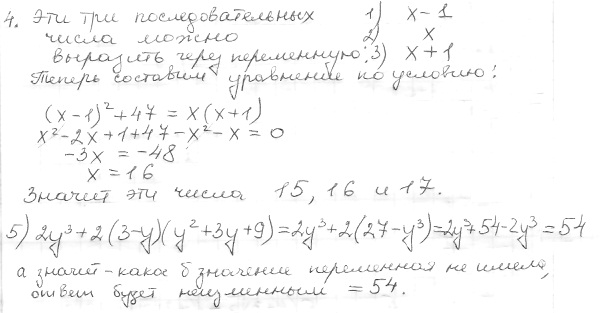 4. Эти три последовательных 1) x-1
числа можно 2) x
выразить через переменную: 3) x+1
Теперь составим уравнение по условию:
(x-1)²+47 = x(x+1)
x²-2x+1+47-x²-x=0
-3x = -48
x = 16
Значит эти числа 15, 16 и 17.
5) 2y³+2(3-y)(y²+3y+9)=2y³+2(27-y³)=2y³+54-2y³=54
а значит-какое б значение переменная не имела,
ответ будет неизменным = 54.